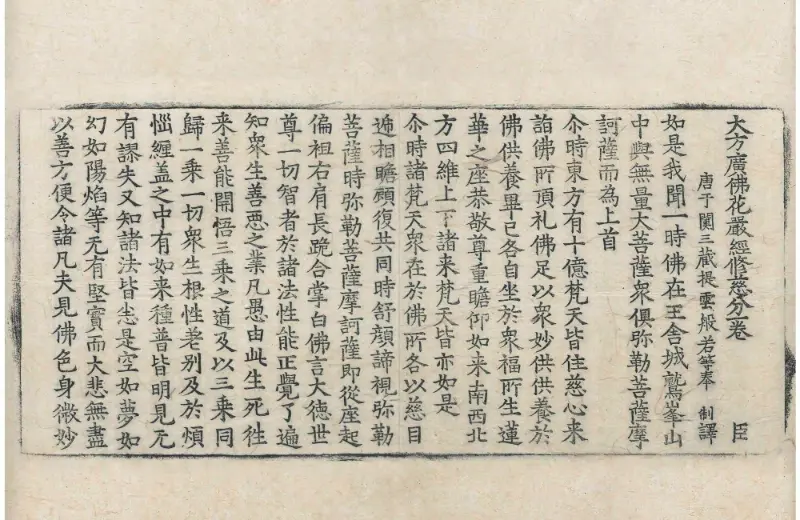 大方廣佛花嚴經修慈分一卷 臣
唐于闐三藏提雲般若等奉 制譯
如是我聞一時佛在王舍城鷲峯山
中與無量大菩薩衆俱弥勒菩薩摩
訶薩而為上首
尒時東方有十億梵天皆住慈心来
詣佛所頂礼佛足以衆妙供供養於
佛供養畢已各自坐於衆福所生蓮
華之座恭敬尊重瞻仰如来南西北
方四維上下諸来梵天皆亦如是
尒時諸梵天衆在於佛所各以慈目
遞相瞻顧復共同時舒顔諦視弥勒
菩薩時弥勒菩薩摩訶薩即從座起
偏袒右肩長跪合掌白佛言大德世
尊一切智者於諸法性能正覺了遍
知衆生善惡之業凡愚由此生死徃
来善能開悟三乘之道及以三乘同
歸一乘一切衆生根性差别及於煩
惱纏盖之中有如来種普皆明見无
有謬失又知諸法皆悉是空如夢如
幻如陽焰等无有堅實而大悲無盡
以善方便令諸凡夫見佛色身微妙